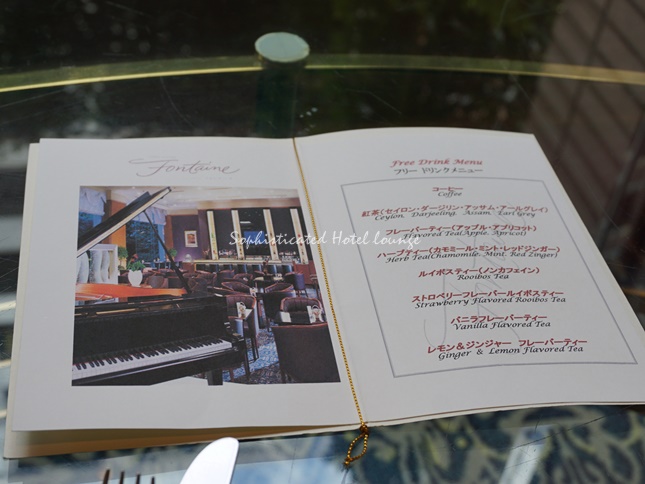 Fontaine
Sophisticated Hotel Lounge
Free Drink Menu
フリー ドリンクメニュー
コーヒー
Coffee
紅茶(セイロン・ダージリン・アッサム・アールグレイ)
Ceylon, Darjeeling, Assam, Earl Grey
フレーバーティー(アップル・アプリコット)
Flavored Tea(Apple, Apricot)
ハーブティー(カモミール・ミント・レッドジンガー)
Herb Tea(Chamomile, Mint, Red Zinger)
ルイボスティー(ノンカフェイン)
Rooibos Tea
ストロベリーフレーバールイボスティー
Strawberry Flavored Rooibos Tea
バニラフレーバーティー
Vanilla Flavored Tea
レモン&ジンジャー フレーバーティー
Ginger & Lemon Flavored Tea